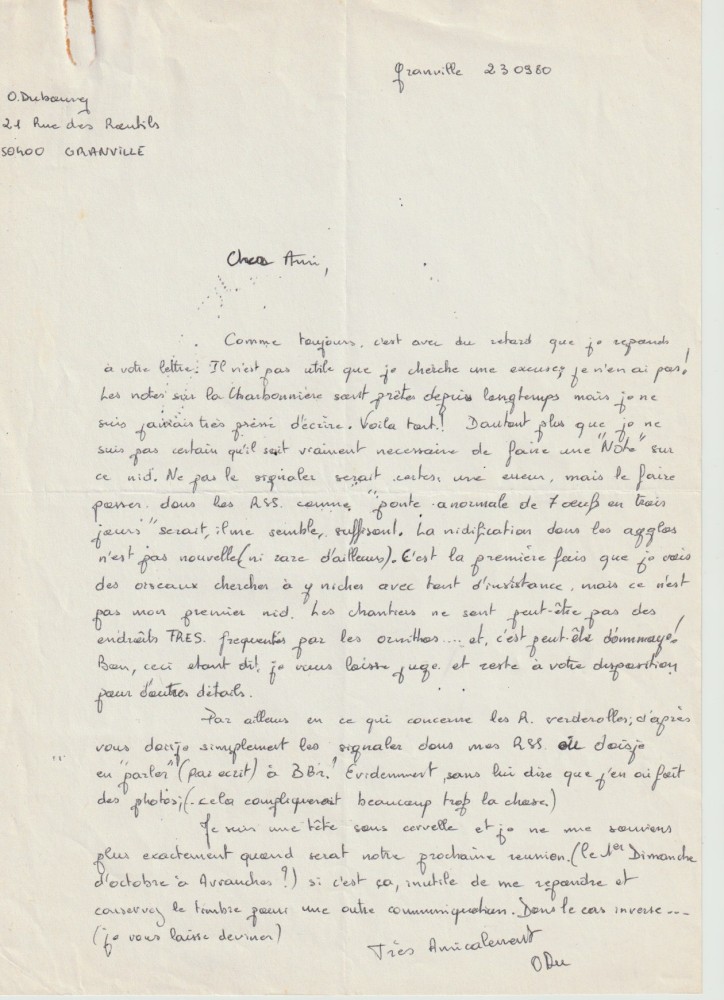 Granville 230980
O.Dubourg
21 Rue des Routils
50400 GRANVILLE
Cher Ami,
Comme toujours, c'est avec du retard que je reponds
à votre lettre. Il n'est pas utile que je cherche une excuse; je n'en ai pas!
Les notes sur la Charbonnière sont prêtes depuis longtemps mais je ne
suis jamais très pressé d'écrire. Voila tout! Dautant plus que je ne
suis pas certain qu'il soit vraiment necessaire de faire une "Note" sur
ce nid. Ne pas le signaler serait certes, une erreur, mais le faire
passer dans les RSS comme "ponte anormale de 7 oeufs en trois
jours" serait, il me semble, suffisant. La nidification dans les agglos
n'est pas nouvelle (ni rare d'ailleurs). C'est la première fois que je vois
des oiseaux chercher à y nicher avec tant d'insistance, mais ce n'est
pas mon premier nid. Les chantiers ne sont peut-être pas des
endroits TRES frequentés par les ornithos.... et, c'est peut-être dommage!
Bon, ceci etant dit, je vous laisse juge et reste à votre disposition
pour d'autres détails.
Par ailleurs en ce qui concerne les R. verderolles, d'après
vous doisje simplement les signaler dans mes RSS ou doisje
en "parler" (par ecrit) à BBr.? Evidemment, sans lui dire que j'en ai fait
des photos; (cela compliquerait beaucoup trop la chose.)
Je suis une tête sans cervelle et je ne me souviens
plus exactement quand serat notre prochaine reunion. (le 1er Dimanche
d'octobre à Avranches?) si c'est ça, inutile de me repondre et
conservez le timbre pour une autre communication. Dans le cas inverse...
(je vous laisse deviner)
Très Amicalement
ODu